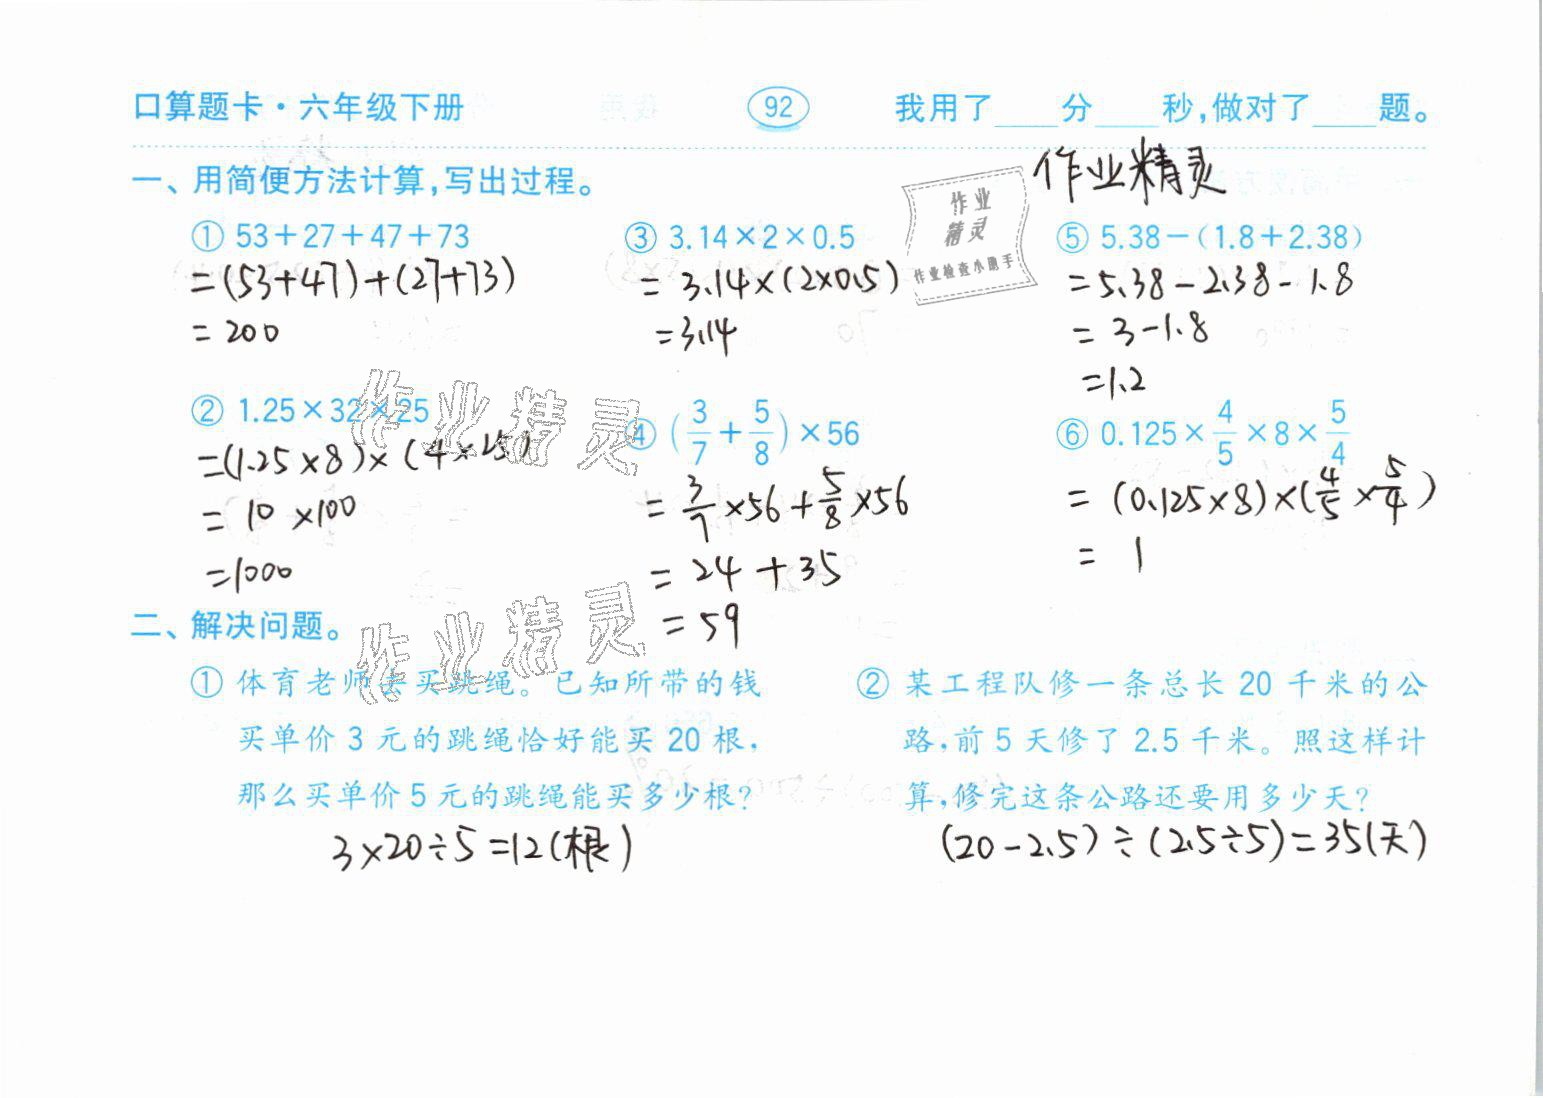 口算题卡·六年级下册 92 我用了____分____秒,做对了____题。
作业精灵
作业
精灵
作业检查小助手
一、用简便方法计算,写出过程。
① 53+27+47+73
=(53+47)+(27+73)
=200
② 1.25×32×25
=(1.25×8)×(4×25)
=10×100
=1000
③ 3.14×2×0.5
=3.14×(2×0.5)
=3.14
④ (3/7+5/8)×56
=3/7×56+5/8×56
=24+35
=59
⑤ 5.38-(1.8+2.38)
=5.38-2.38-1.8
=3-1.8
=1.2
⑥ 0.125×4/5×8×5/4
=(0.125×8)×(4/5×5/4)
=1
作业精灵
二、解决问题。
作业精灵
① 体育老师去买跳绳。已知所带的钱
买单价3元的跳绳恰好能买20根,
那么买单价5元的跳绳能买多少根?
3×20÷5=12(根)
② 某工程队修一条总长20千米的公
路,前5天修了2.5千米。照这样计
算,修完这条公路还要用多少天?
(20-2.5)÷(2.5÷5)=35(天)